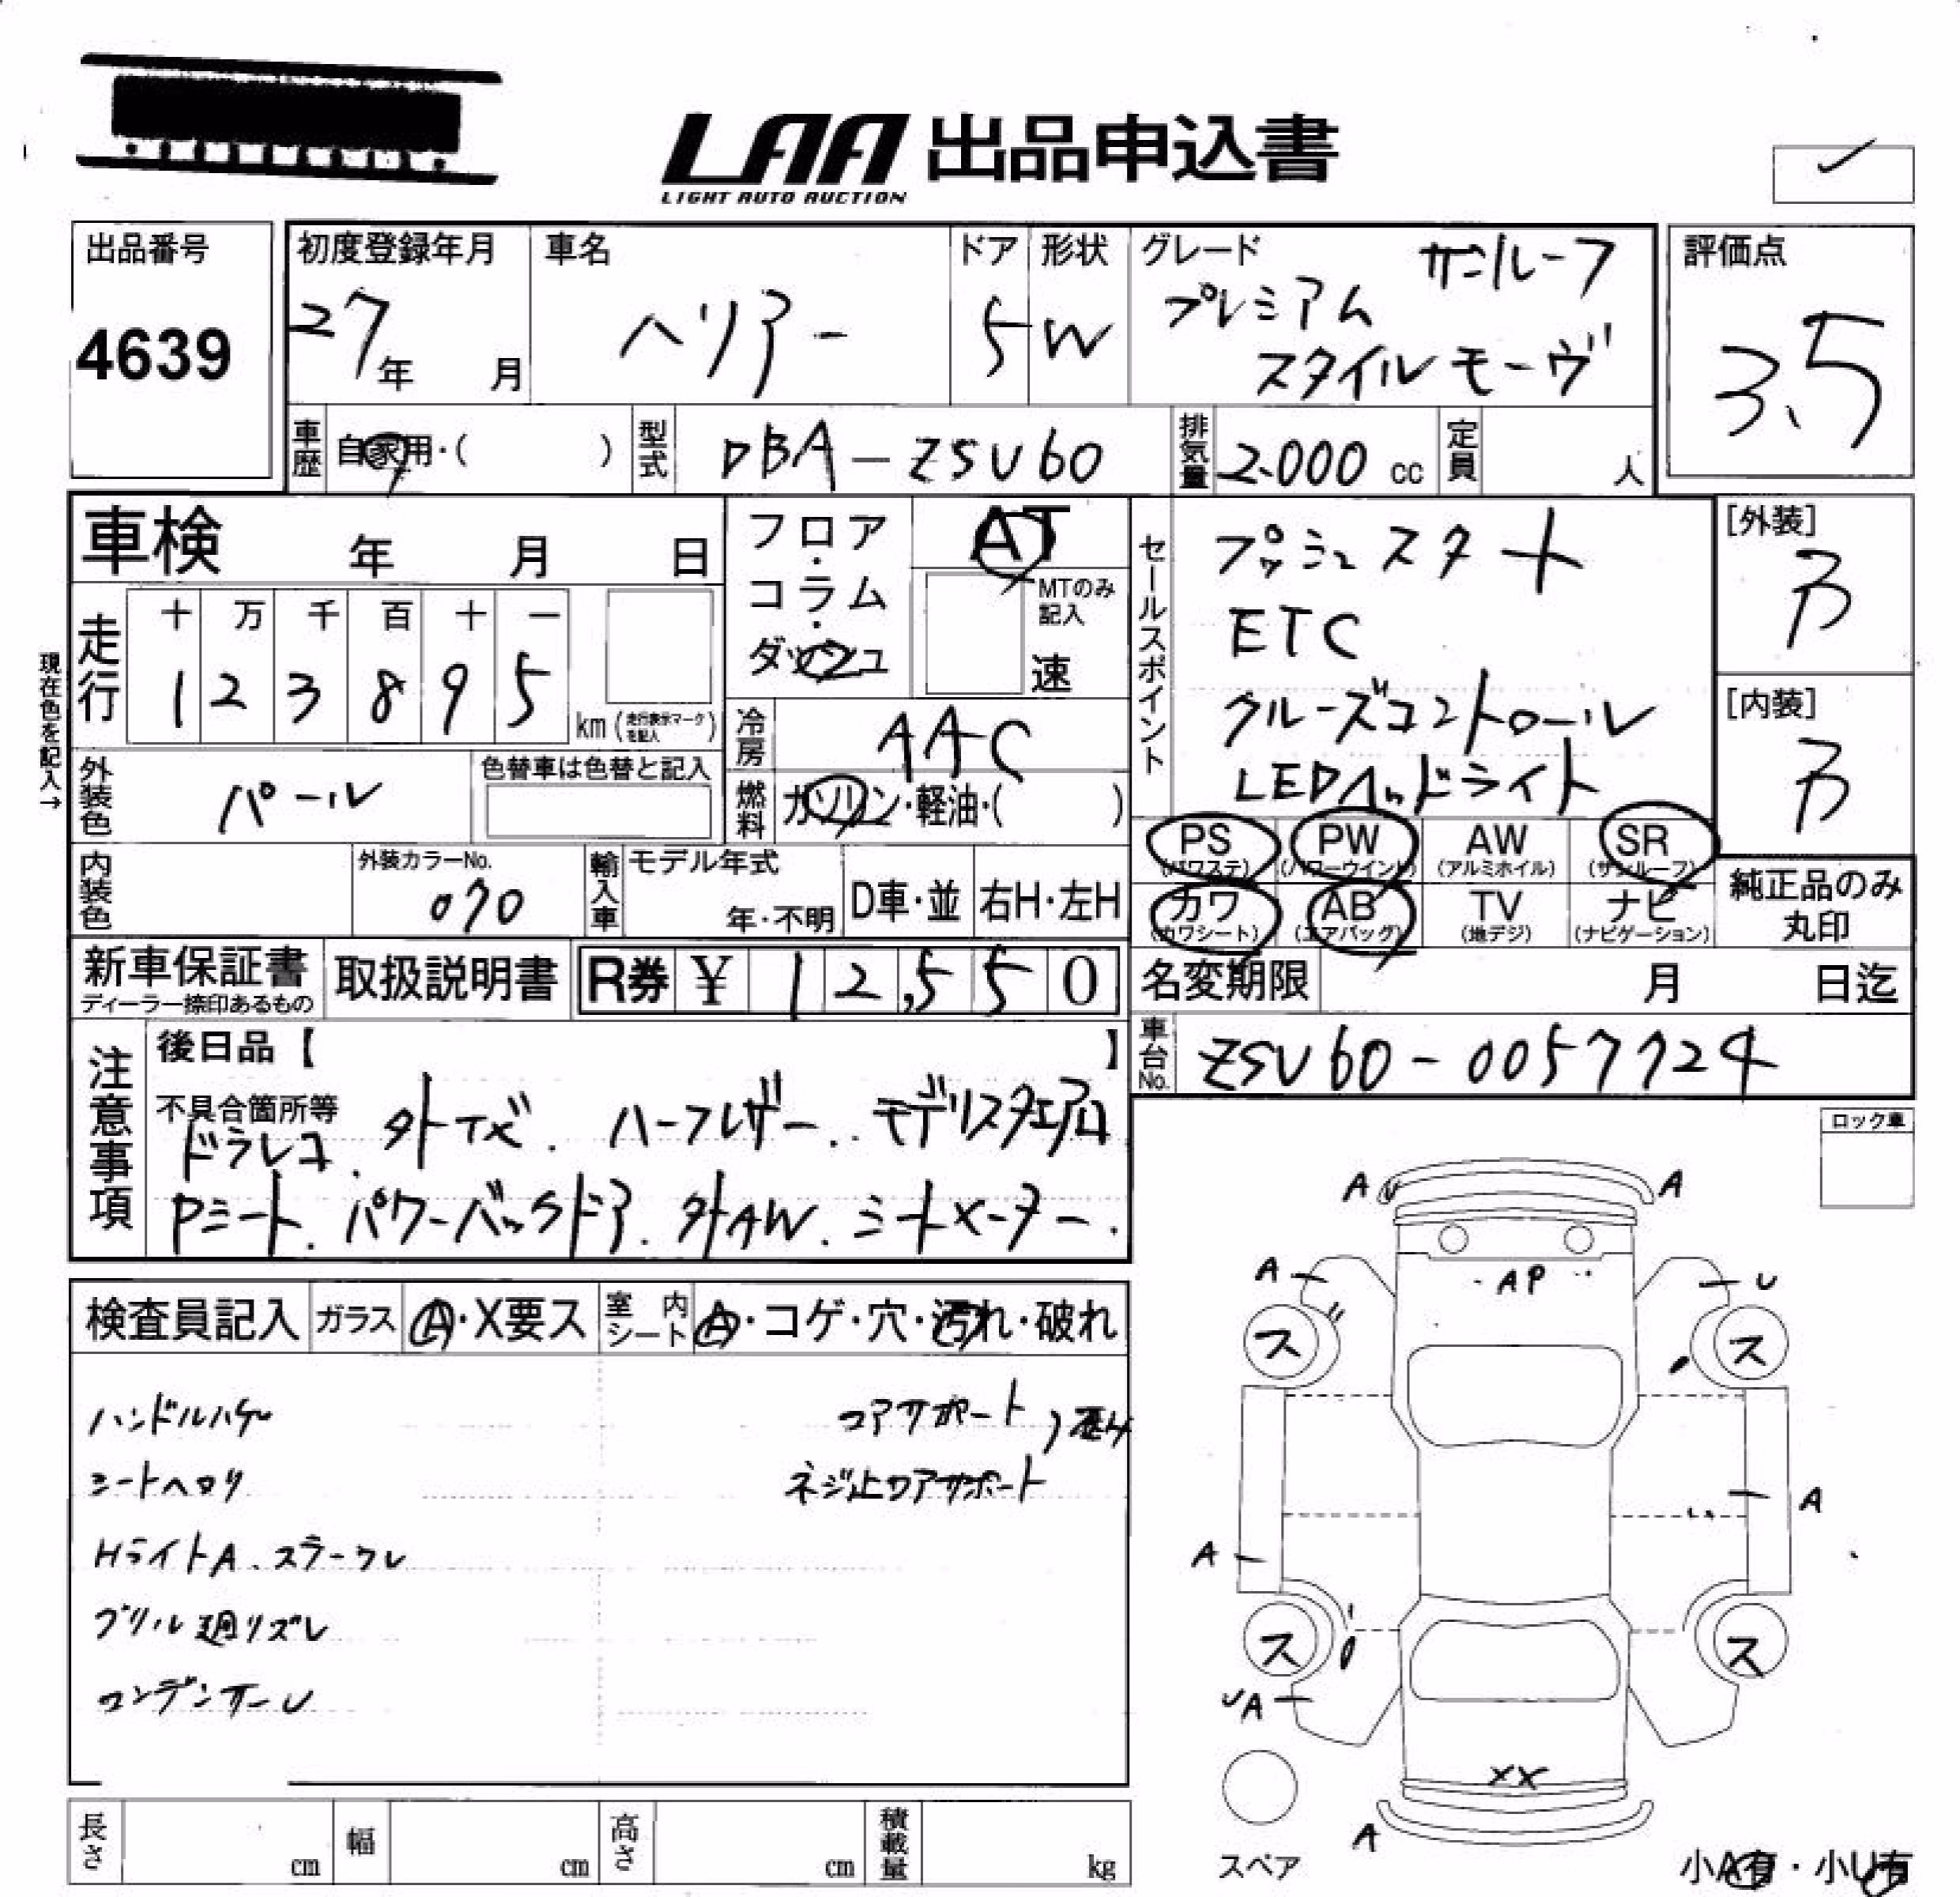 LAA 出品申込書
LIGHT AUTO AUCTION
出品番号
4639
初度登録年月
27年 月
車名
ハリアー
ドア
5
形状
W
グレード
サンルーフ
プレミアム
スタイルモーヴ
評価点
3.5
車歴 自家用・( )
型式 DBA-ZSU60
排気量 2.000 cc
定員 人
車検 年 月 日
フロア・コラム・ダッシュ
AT
MTのみ記入
速
セールスポイント
プッシュスタート
ETC
クルーズコントロール
LEDヘッドライト
[外装]
B
[内装]
B
現在色を記入→
走行
十 万 千 百 十 一
1 2 3 8 9 5
km (走行表示マークを記入)
冷房 AAC
外装色 パール
色替車は色替と記入
燃料 ガソリン・軽油・( )
PS (パワステ)
PW (パワーウインド)
AW (アルミホイル)
SR (サンルーフ)
カワ (カワシート)
AB (エアバッグ)
TV (地デジ)
ナビ (ナビゲーション)
純正品のみ丸印
内装色
外装カラーNo.
070
輸入車
モデル年式
年・不明
D車・並
右H・左H
新車保証書
ディーラー捺印あるもの
取扱説明書
R券 ¥ 12,550
名変期限 月 日迄
車台No. ZSU60-0057724
注意事項
後日品【 】
不具合箇所等
ドラレコ. 外TVﾞ. ハーフレザー. モデリスタエアロ
Pシート. パワーバックドア. 外AW. シートメーター.
ロック車
検査員記入
ガラス A・X要ス
室内シート A・コゲ・穴・汚れ・破れ
ハンドルハゲ
シートヘタリ
HライトA.
グリル廻リズレ
コンデンサーU
コアサポート
ネジ止コアサポート
A U A
A
AP
U
ス ス
A
A
ス ス
UA
XX
A
スペア
小A有・小U有
長さ cm
幅 cm
高さ cm
積載量 kg